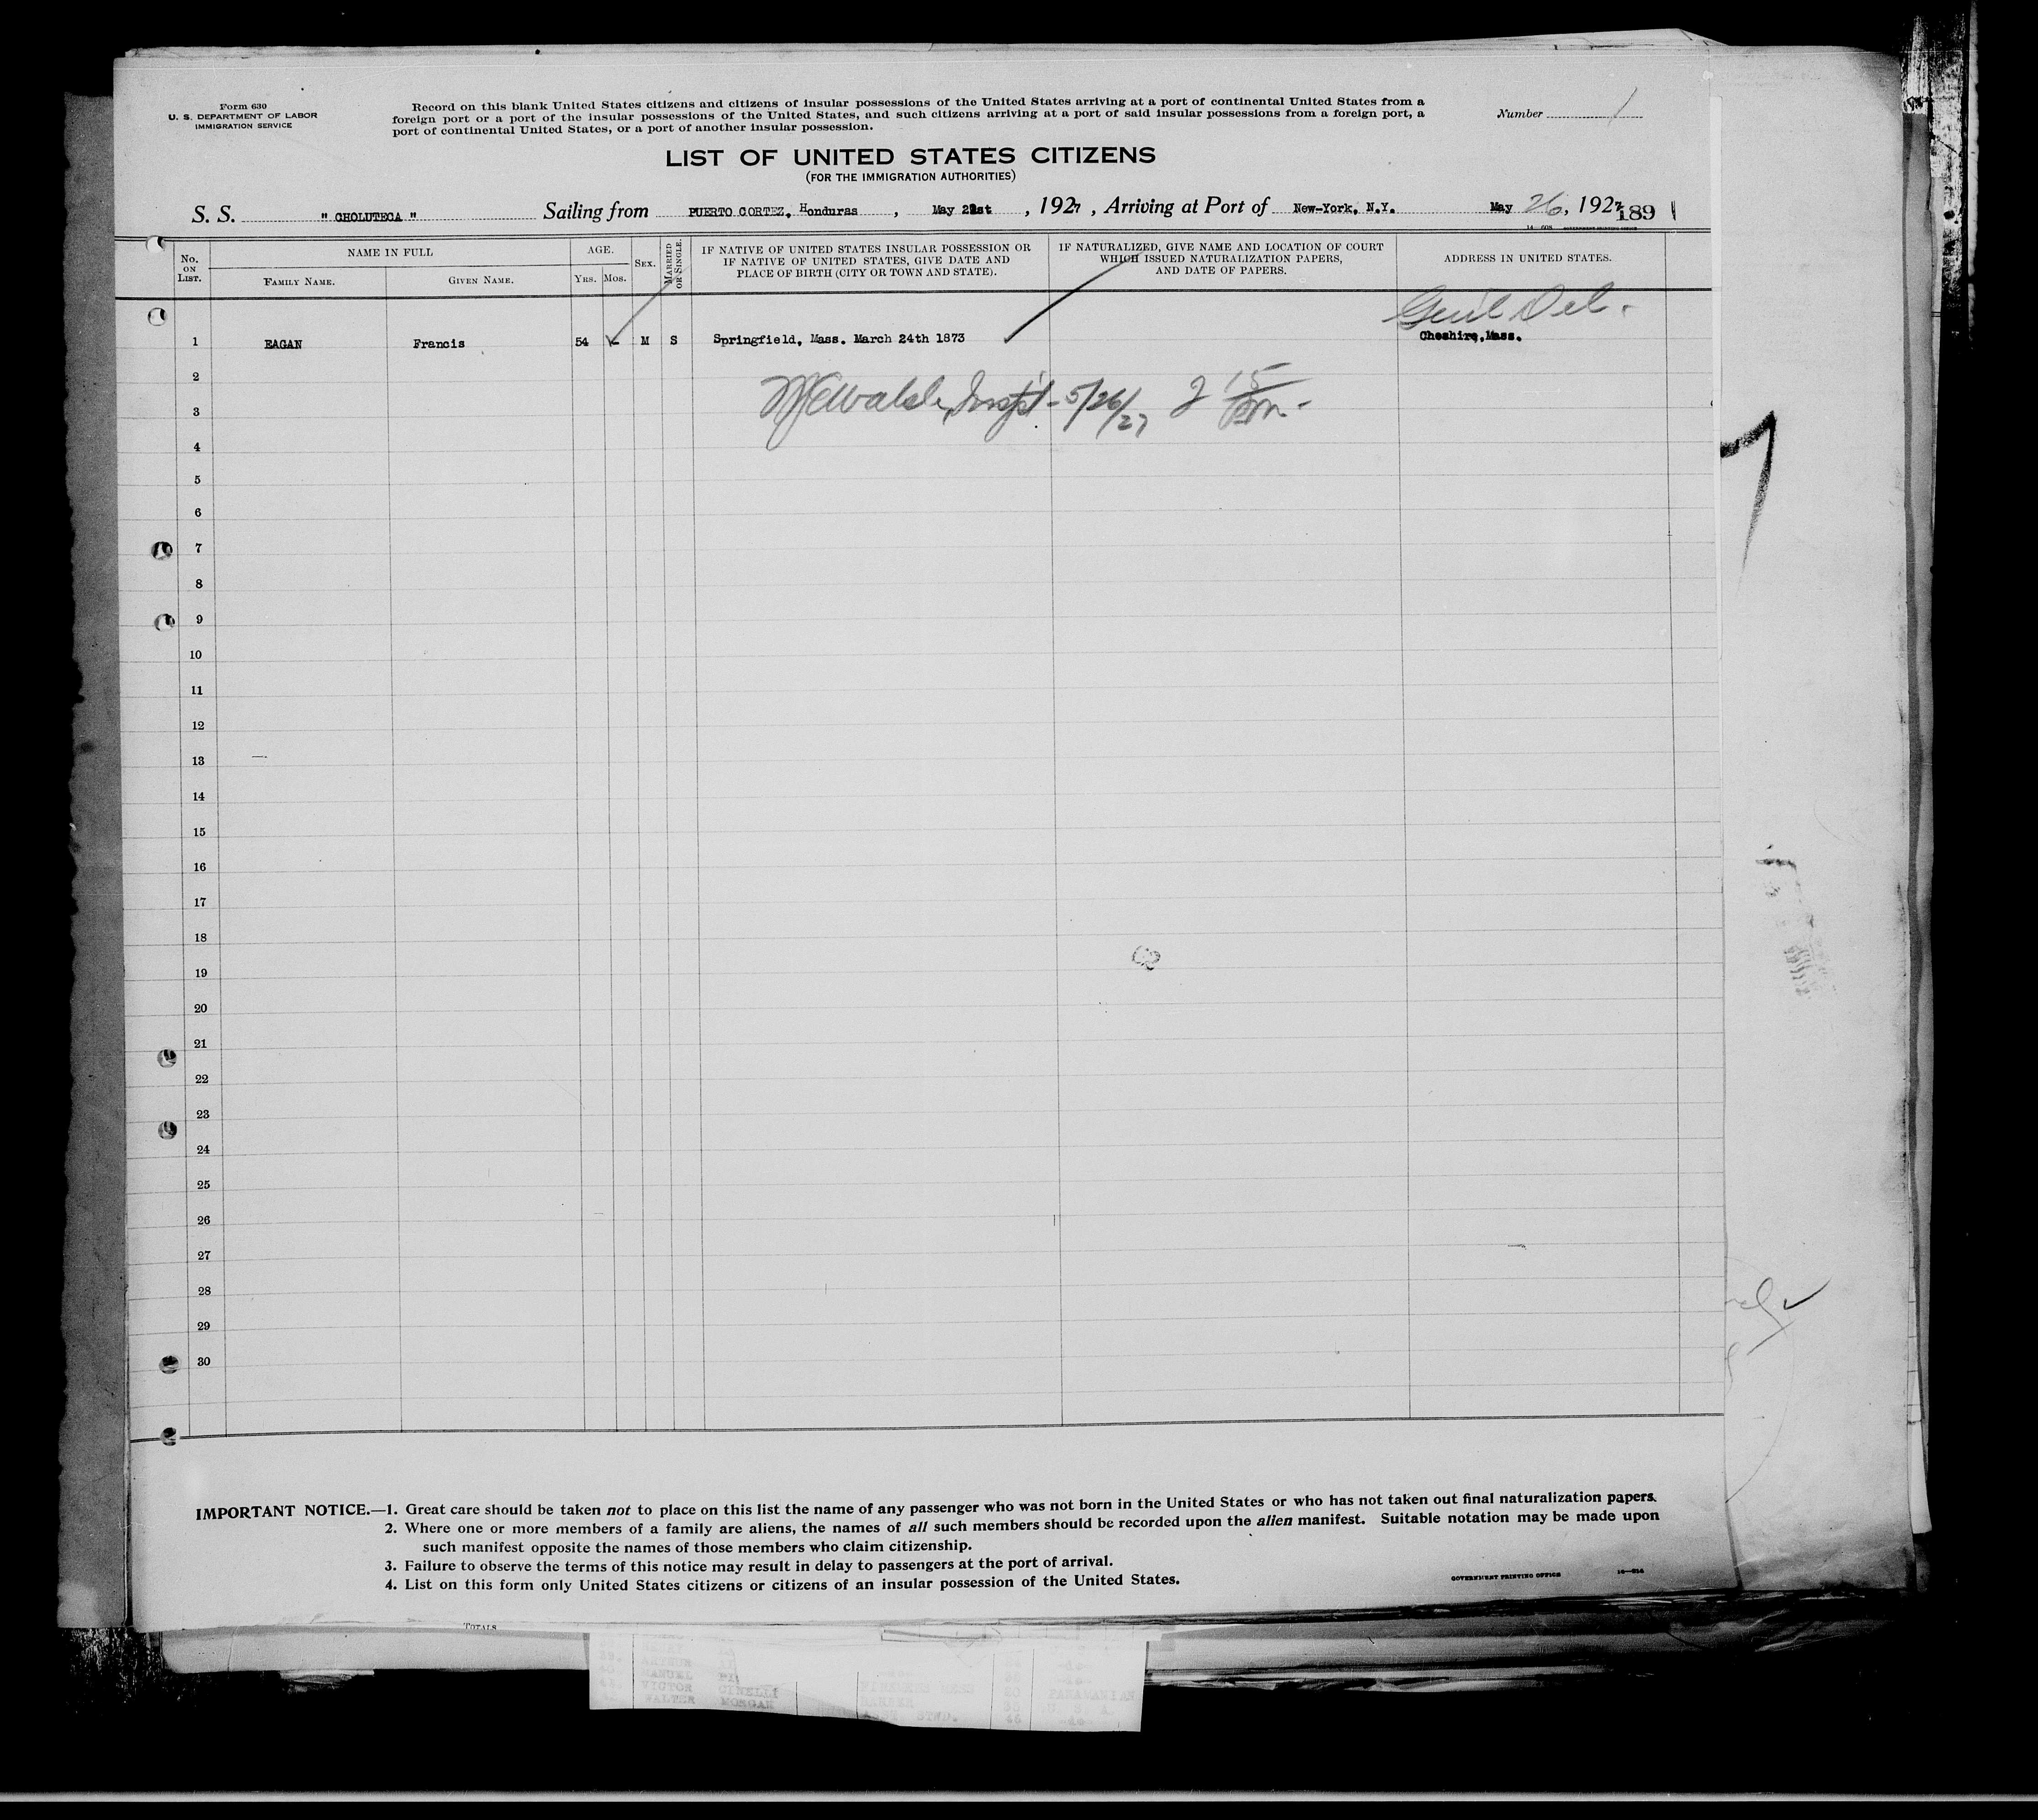 Form 630
U. S. DEPARTMENT OF LABOR
IMMIGRATION SERVICE
Record on this blank United States citizens and citizens of insular possessions of the United States arriving at a port of continental United States from a
foreign port or a port of the insular possessions of the United States, and such citizens arriving at a port of said insular possessions from a foreign port, a
port of continental United States, or a port of another insular possession.
Number 1
LIST OF UNITED STATES CITIZENS
(FOR THE IMMIGRATION AUTHORITIES)
S. S. " CHOLUTECA " Sailing from PUERTO CORTEZ, Honduras, May 21st, 1927, Arriving at Port of New-York, N.Y. May 26, 1927
189
No. ON LIST.
NAME IN FULL
FAMILY NAME.
GIVEN NAME.
AGE.
YRS. MOS.
SEX.
MARRIED OR SINGLE.
IF NATIVE OF UNITED STATES INSULAR POSSESSION OR
IF NATIVE OF UNITED STATES, GIVE DATE AND
PLACE OF BIRTH (CITY OR TOWN AND STATE).
IF NATURALIZED, GIVE NAME AND LOCATION OF COURT
WHICH ISSUED NATURALIZATION PAPERS,
AND DATE OF PAPERS.
ADDRESS IN UNITED STATES.
Gen'l Del.
1 EAGAN Francis 54 M S Springfield, Mass. March 24th 1873 Cheshire, Mass.
2
Insp't - 5/26/27 2 15 pm -
3
4
5
6
7
8
9
10
11
12
13
14
15
16
17
18
19
20
21
22
23
24
25
26
27
28
29
30
IMPORTANT NOTICE.—1. Great care should be taken not to place on this list the name of any passenger who was not born in the United States or who has not taken out final naturalization papers.
2. Where one or more members of a family are aliens, the names of all such members should be recorded upon the alien manifest. Suitable notation may be made upon
such manifest opposite the names of those members who claim citizenship.
3. Failure to observe the terms of this notice may result in delay to passengers at the port of arrival.
4. List on this form only United States citizens or citizens of an insular possession of the United States.
GOVERNMENT PRINTING OFFICE
TOTALS
ARTHUR
MANUEL
VICTOR CINELLI
WALTER MORGAN
PANAMANIAN